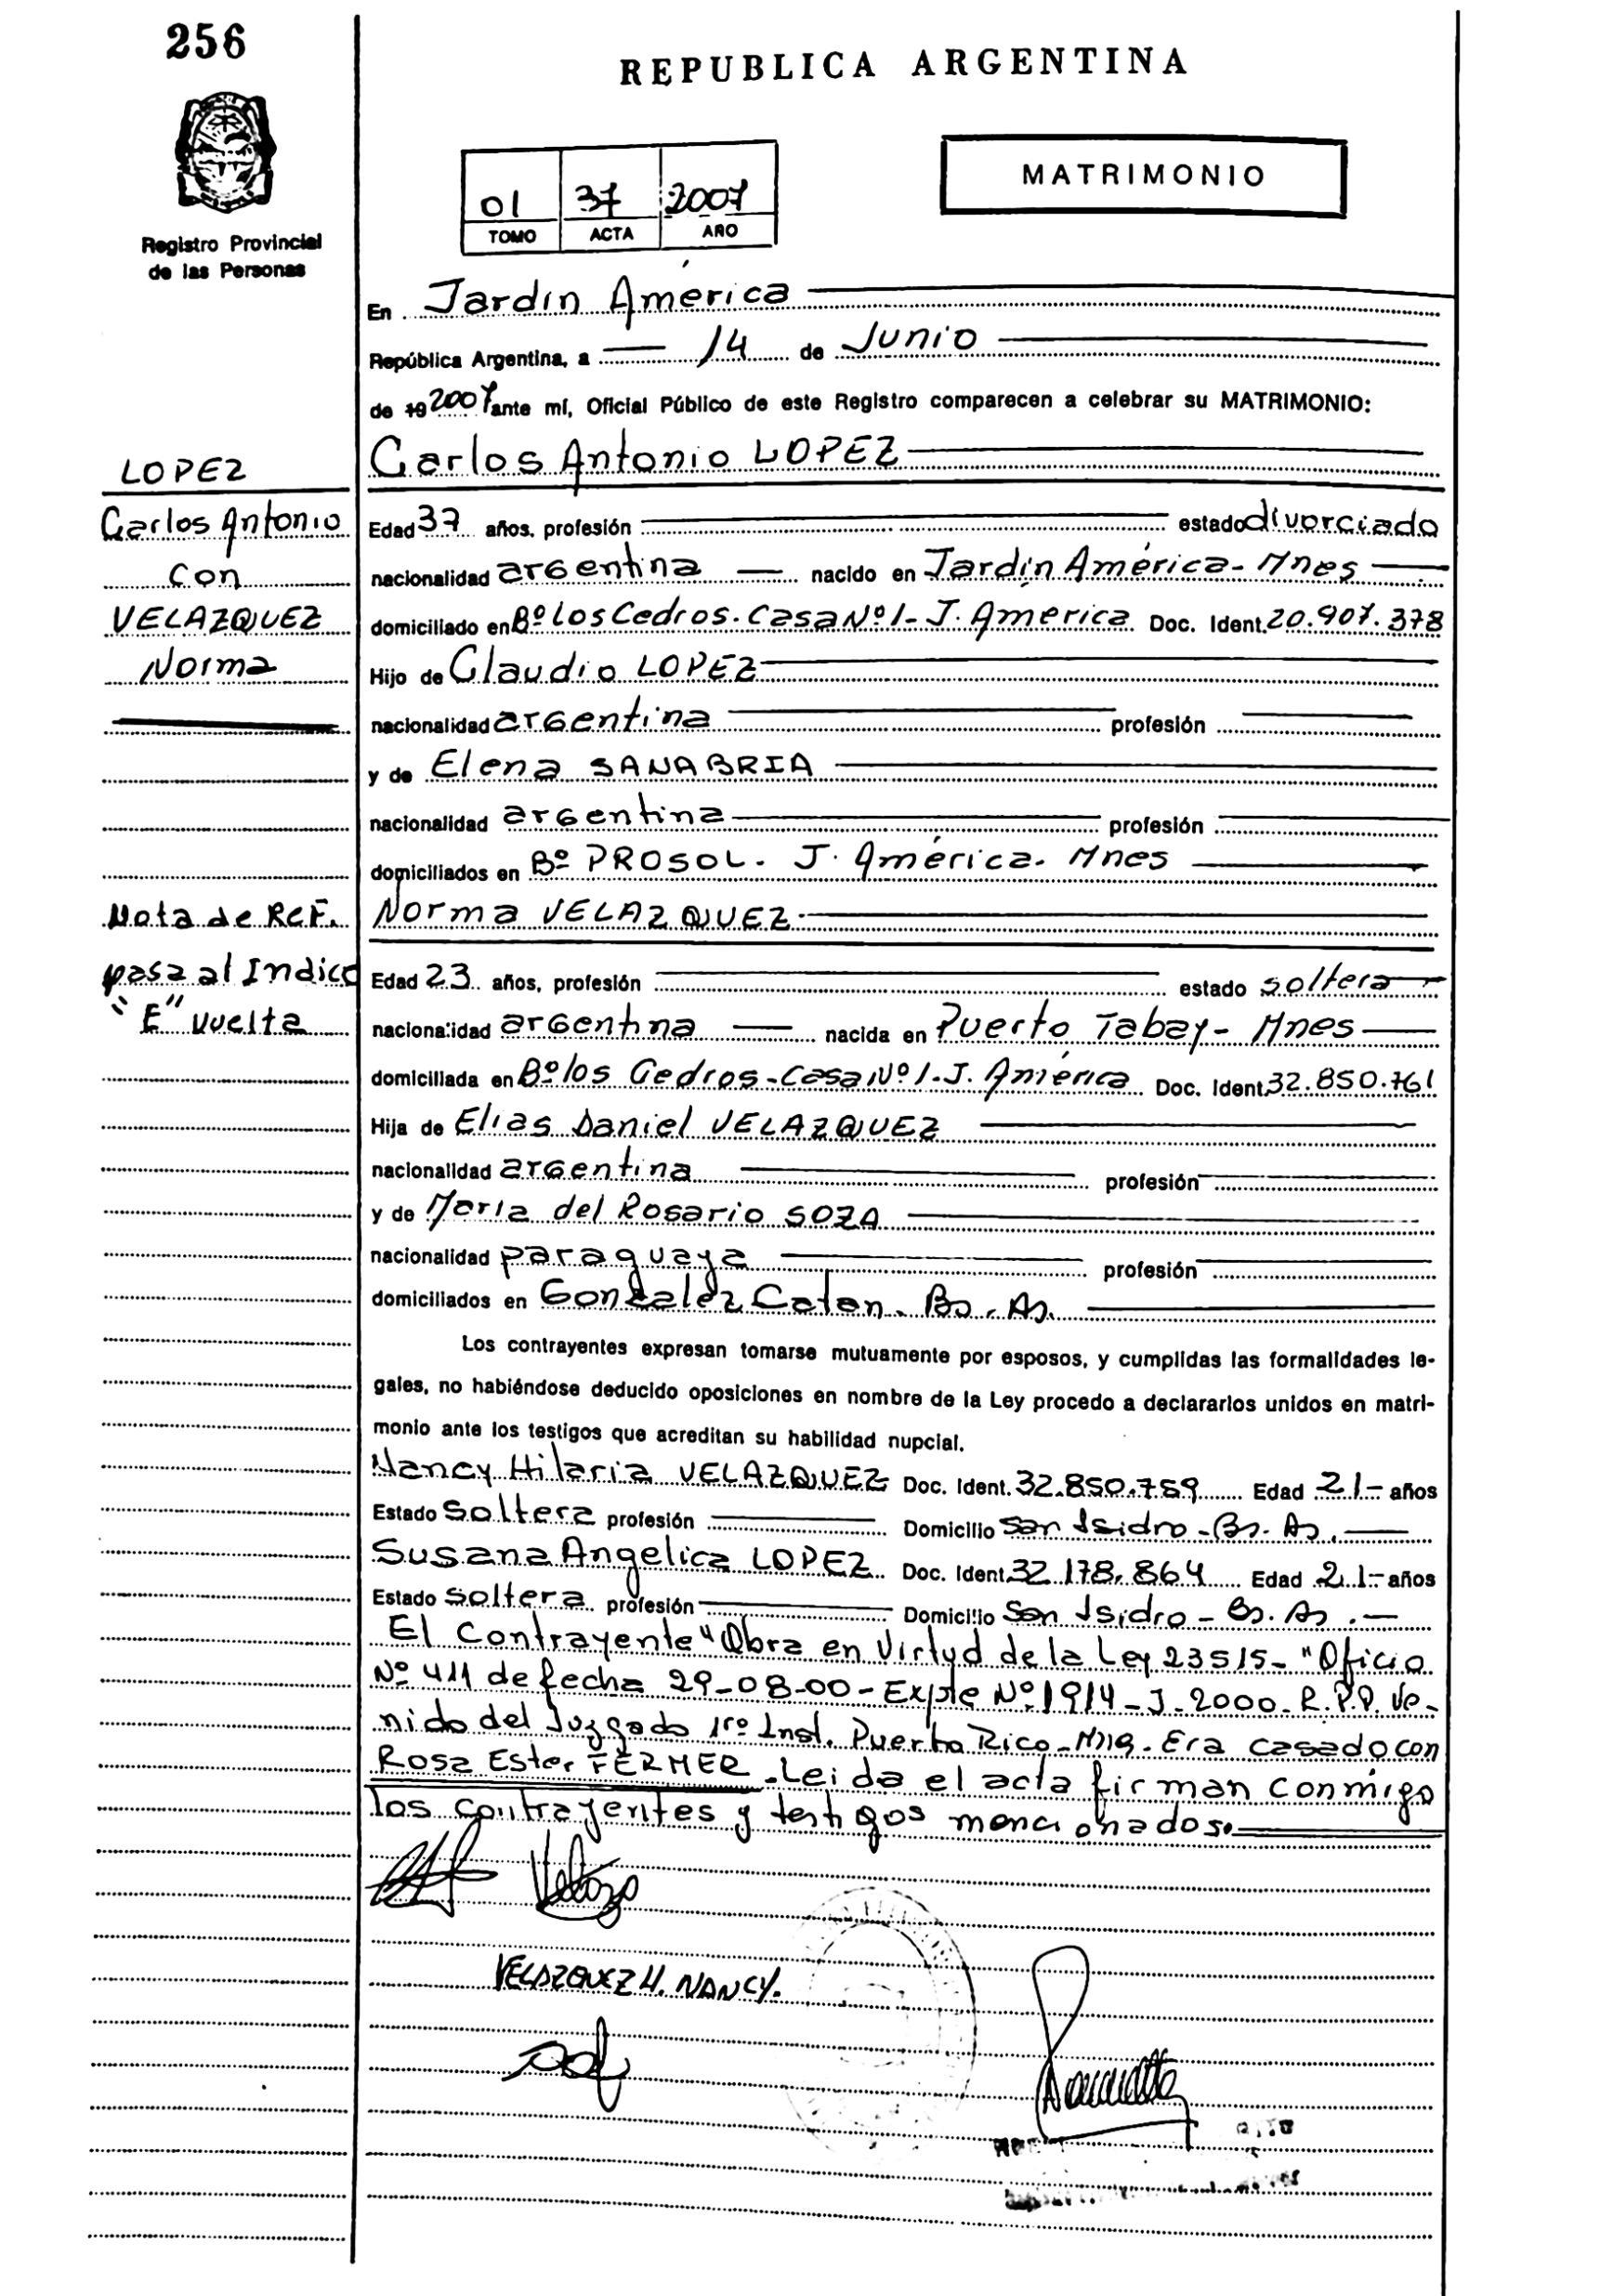 256
REPUBLICA ARGENTINA
MATRIMONIO
01 37 2007
TOMO ACTA AÑO
Registro Provincial
de las Personas
En Jardín América
República Argentina, a 14 de Junio
de 19 2007 ante mí, Oficial Público de este Registro comparecen a celebrar su MATRIMONIO:
Carlos Antonio LOPEZ
LOPEZ
Carlos Antonio
con
VELAZQUEZ
Norma
Edad 37 años, profesión estado divorciado
nacionalidad argentina nacido en Jardín América - Mnes
domiciliado en Bº Los Cedros. Casa Nº 1 - J. América Doc. Ident. 20.907.378
Hijo de Claudio LOPEZ
nacionalidad argentina profesión
y de Elena SANABRIA
nacionalidad argentina profesión
domiciliados en Bº PROSOL. J. América. Mnes
Norma VELAZQUEZ
Nota de REF.
pasa al Indice
"E" vuelta
Edad 23 años, profesión estado soltera
nacionalidad argentina nacida en Puerto Tabay - Mnes
domiciliada en Bº los Cedros - Casa Nº 1. J. América Doc. Ident. 32.850.761
Hija de Elias Daniel VELAZQUEZ
nacionalidad argentina profesión
y de Maria del Rosario SOZA
nacionalidad paraguaya profesión
domiciliados en Gonzalez Catan. Bs. As.
Los contrayentes expresan tomarse mutuamente por esposos, y cumplidas las formalidades le-
gales, no habiéndose deducido oposiciones en nombre de la Ley procedo a declararlos unidos en matri-
monio ante los testigos que acreditan su habilidad nupcial.
Nancy Hilaria VELAZQUEZ Doc. Ident. 32.850.759 Edad 21- años
Estado Soltera profesión Domicilio San Isidro - Bs. As.
Susana Angelica LOPEZ Doc. Ident. 32.178.864 Edad 21- años
Estado Soltera profesión Domicilio San Isidro - Bs. As.
El Contrayente "Obra en Virtud de la Ley 23515- "Oficio
Nº 411 de fecha 29-08-00 - Expte Nº 1914 - J - 2000. R.P.P. Ve-
nido del Juzgado 1ro Inst. Puerto Rico - Mns. Era casado con
Rosa Ester FERMER. Leida el acta firman conmigo
los contrayentes y testigos mencionados.
VELAZQUEZ H. NANCY.